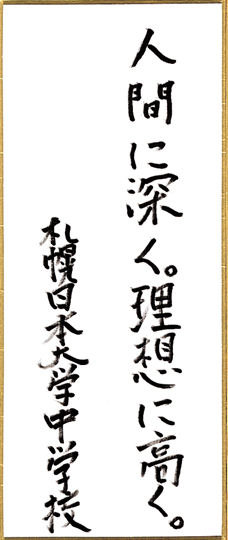 人間に深く。理想に高く。
札幌日本大学中学校